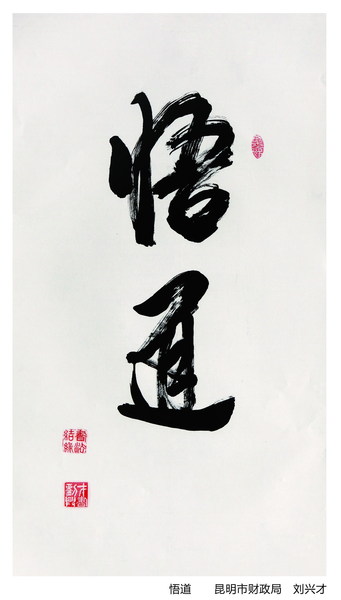 悟
道
悟道　　昆明市财政局　刘兴才